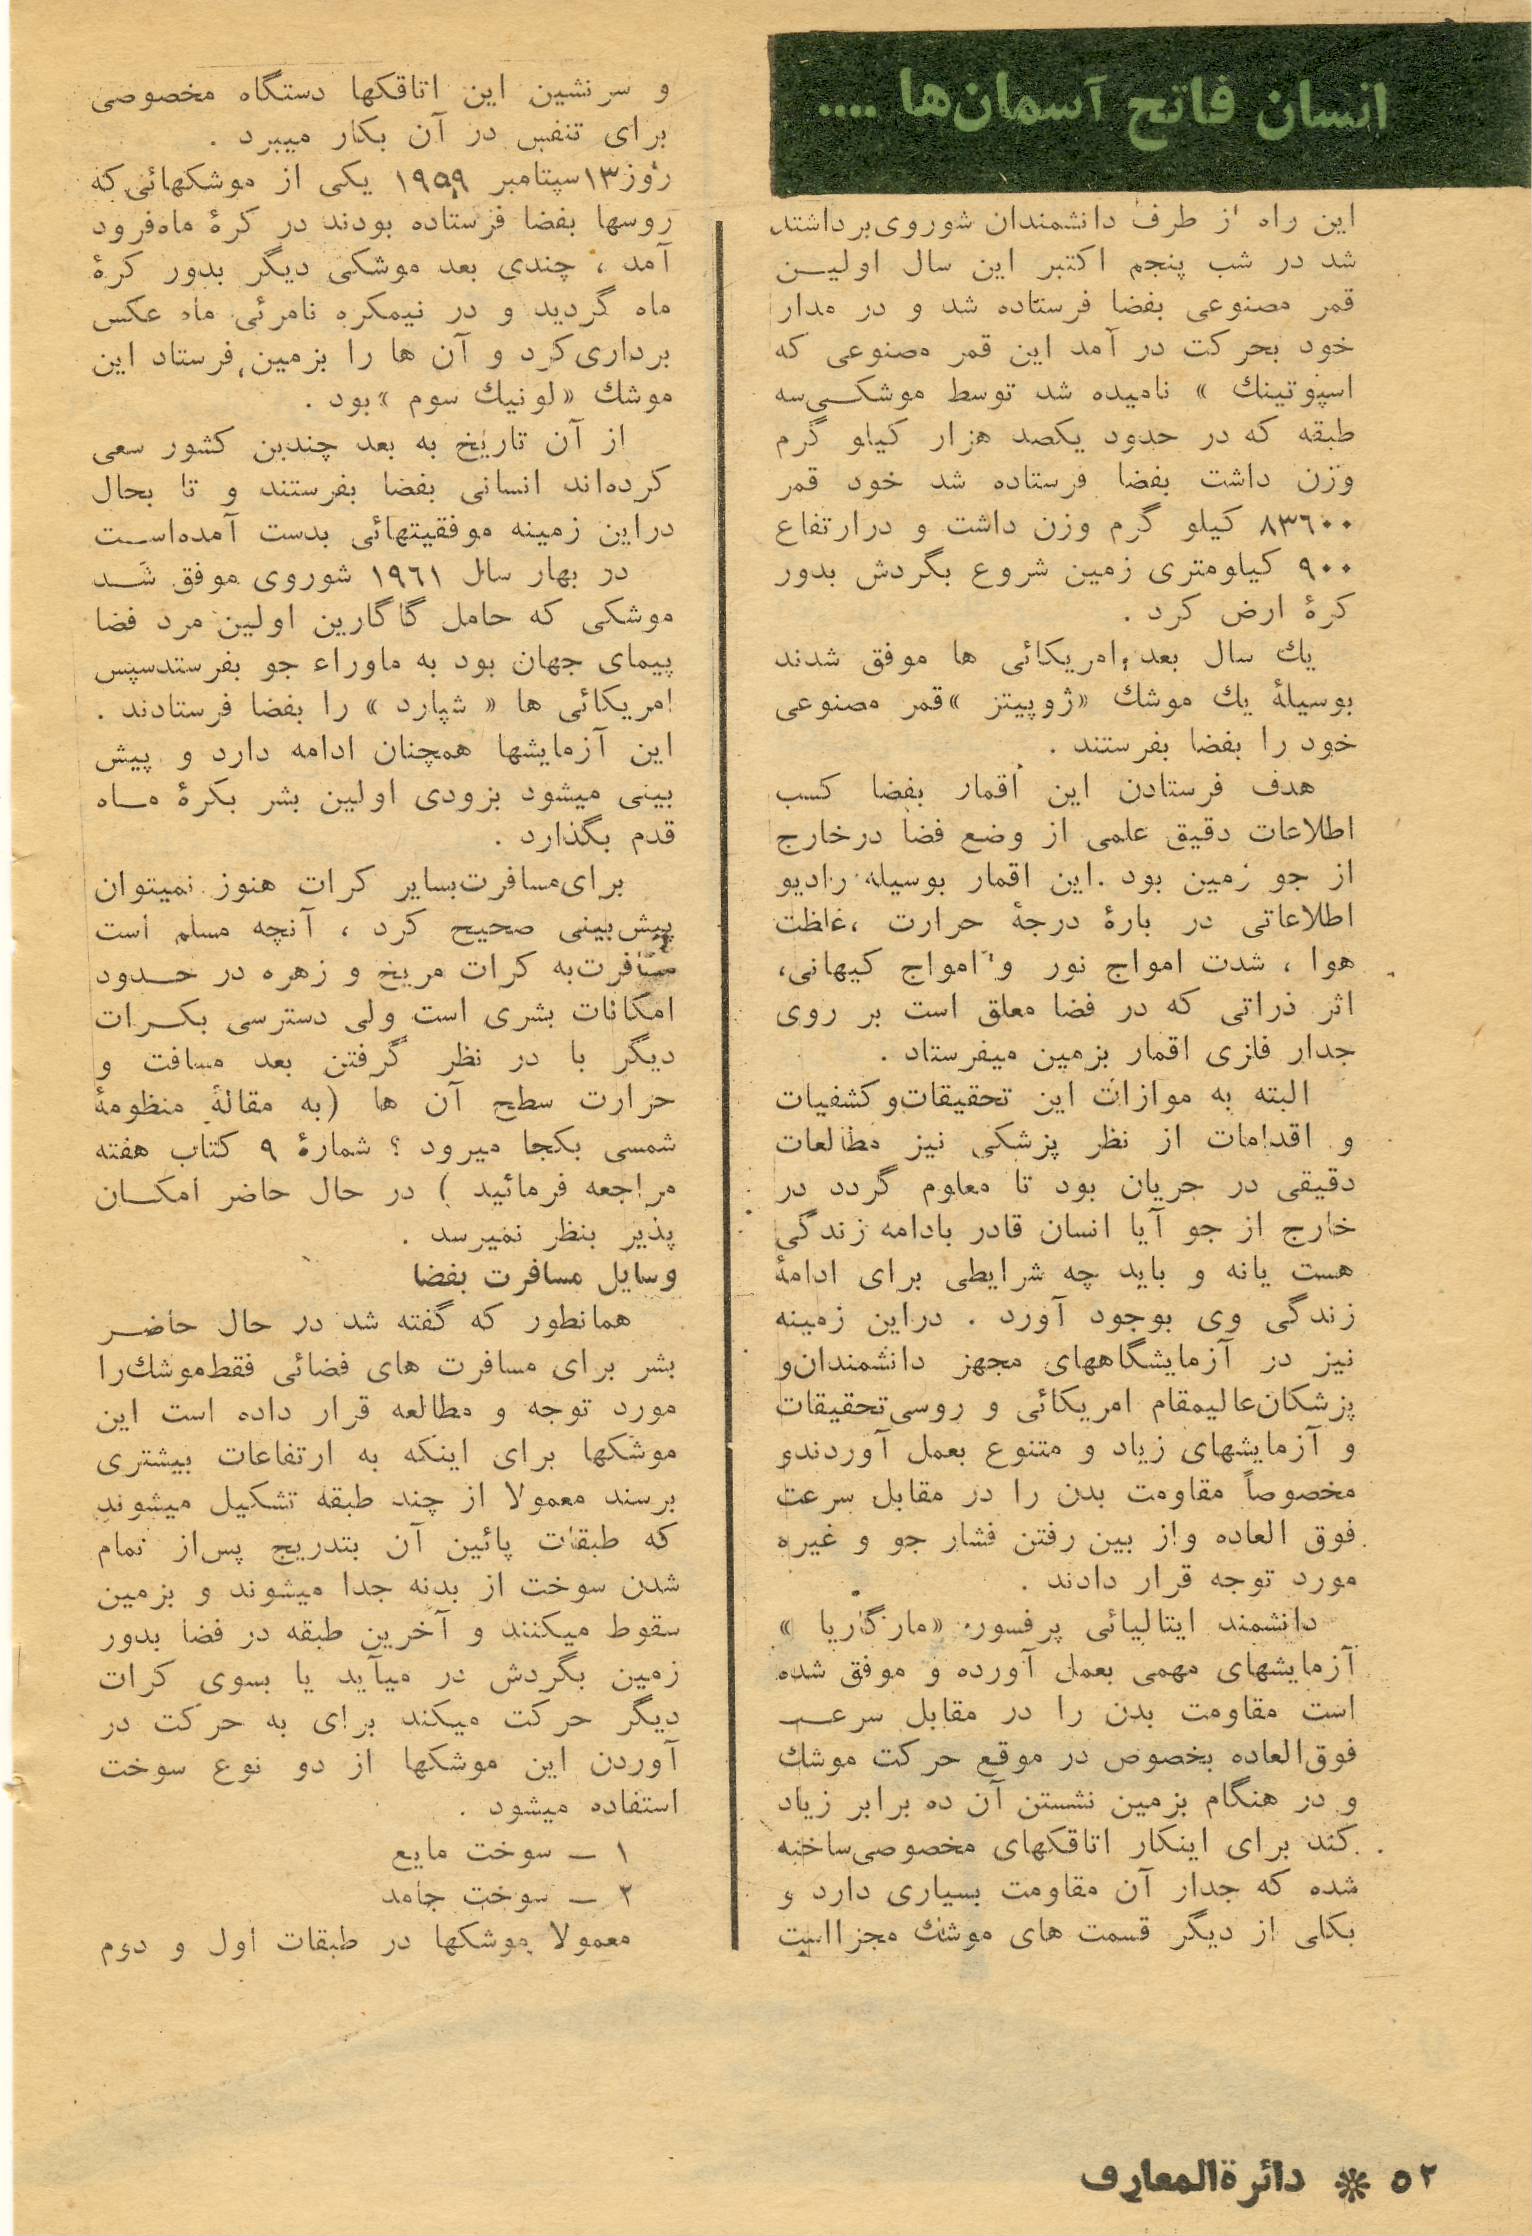 انسان فاتح آسمان‌ها ....
این راه از طرف دانشمندان شوروی برداشته
شد در شب پنجم اکتبر این سال اولیـــن
قمر مصنوعی بفضا فرستاده شد و در مدار
خود بحرکت در آمد این قمر مصنوعی که
اسپوتینك » نامیده شد توسط موشکـی سه
طبقه که در حدود یکصد هزار کیلو گرم
وزن داشت بفضا فرستاده شد خود قمر
۸۳٦۰۰ کیلو گرم وزن داشت و در ارتفاع
۹۰۰ کیلومتری زمین شروع بگردش بدور
کرهٔ ارض کرد .
یك سال بعد امریکائی ها موفق شدند
بوسیلهٔ یك موشك «ژوپیتز »قمر مصنوعی
خود را بفضا بفرستند .
هدف فرستادن این اقمار بفضا کسب
اطلاعات دقیق علمی از وضع فضا درخارج
از جو زمین بود .این اقمار بوسیله رادیو
اطلاعاتی در بارهٔ درجهٔ حرارت ،غلظت
هوا ، شدت امواج نور و امواج کیهانی،
اثر ذراتی که در فضا معلق است بر روی
جدار فلزی اقمار بزمین میفرستاد .
البته به موازات این تحقیقات‌و کشفیات
و اقدامات از نظر پزشکی نیز مطالعات
دقیقی در جریان بود تا معلوم گردد در
خارج از جو آیا انسان قادر بادامه زندگی
هست یانه و باید چه شرایطی برای ادامهٔ
زندگی وی بوجود آورد . دراین زمینه
نیز در آزمایشگاههای مجهز دانشمندان‌و
پزشکان‌عالیمقام امریکائی و روسی‌تحقیقات
و آزمایشهای زیاد و متنوع بعمل آوردندو
مخصوصاً مقاومت بدن را در مقابل سرعت
فوق العاده واز بین رفتن فشار جو و غیره
مورد توجه قرار دادند .
دانشمند ایتالیائی پرفسور «مارگاریا »
آزمایشهای مهمی بعمل آورده و موفق شده
است مقاومت بدن را در مقابل سرعــت
فوق‌العاده بخصوص در موقع حرکت موشك
و در هنگام بزمین نشستن آن ده برابر زیاد
کند برای اینکار اتاقکهای مخصوصی‌ساخته
شده که جدار آن مقاومت بسیاری دارد و
بکلی از دیگر قسمت های موشك مجزااست
و سرنشین این اتاقکها دستگاه مخصوصی
برای تنفس در آن بکار میبرد .
روز۱۳سپتامبر ۱۹۵۹ یکی از موشکهائی‌که
روسها بفضا فرستاده بودند در کرهٔ ماه‌فرود
آمد ، چندی بعد موشکی دیگر بدور کرهٔ
ماه گردید و در نیمکره نامرئی ماه عکس
برداری‌کرد و آن ها را بزمین فرستاد این
موشك «لونیك سوم »بود .
از آن تاریخ به بعد چندبن کشور سعی
کرده‌اند انسانی بفضا بفرستند و تا بحال
دراین زمینه موفقیتهائی بدست آمده‌اســت
در بهار سال ۱۹٦۱ شوروی موفق شــد
موشکی که حامل گاگارین اولین مرد فضا
پیمای جهان بود به ماوراء جو بفرستدسپس
امریکائی ها « شپارد » را بفضا فرستادند .
این آزمایشها همچنان ادامه دارد و پیش
بینی میشود بزودی اولین بشر بکرهٔ مــاه
قدم بگذارد .
برای‌مسافرت‌بسایر کرات هنوز نمیتوان
پیش‌بینی صحیح کرد ، آنچه مسلم است
مسافرت‌به کرات مریخ و زهره در حــدود
امکانات بشری است ولی دسترسی بکــرات
دیگر با در نظر گرفتن بعد مسافت و
حرارت سطح آن ها (به مقالهٔ منظومهٔ
شمسی بکجا میرود ؟ شمارهٔ ۹ کتاب هفته
مراجعه فرمائید ) در حال حاضر امکــان
پذیر بنظر نمیرسد .
وسایل مسافرت بفضا
همانطور که گفته شد در حال حاضـر
بشر برای مسافرت های فضائی فقط‌موشك‌را
مورد توجه و مطالعه قرار داده است این
موشکها برای اینکه به ارتفاعات بیشتری
برسند معمولا از چند طبقه تشکیل میشوند
که طبقات پائین آن بتدریج پس‌از تمام
شدن سوخت از بدنه جدا میشوند و بزمین
سقوط میکنند و آخرین طبقه در فضا بدور
زمین بگردش در میآید یا بسوی کرات
دیگر حرکت میکند برای به حرکت در
آوردن این موشکها از دو نوع سوخت
استفاده میشود .
۱ – سوخت مایع
۲ – سوخت جامد
معمولا موشکها در طبقات اول و دوم
۵۲ * دائرةالمعارف